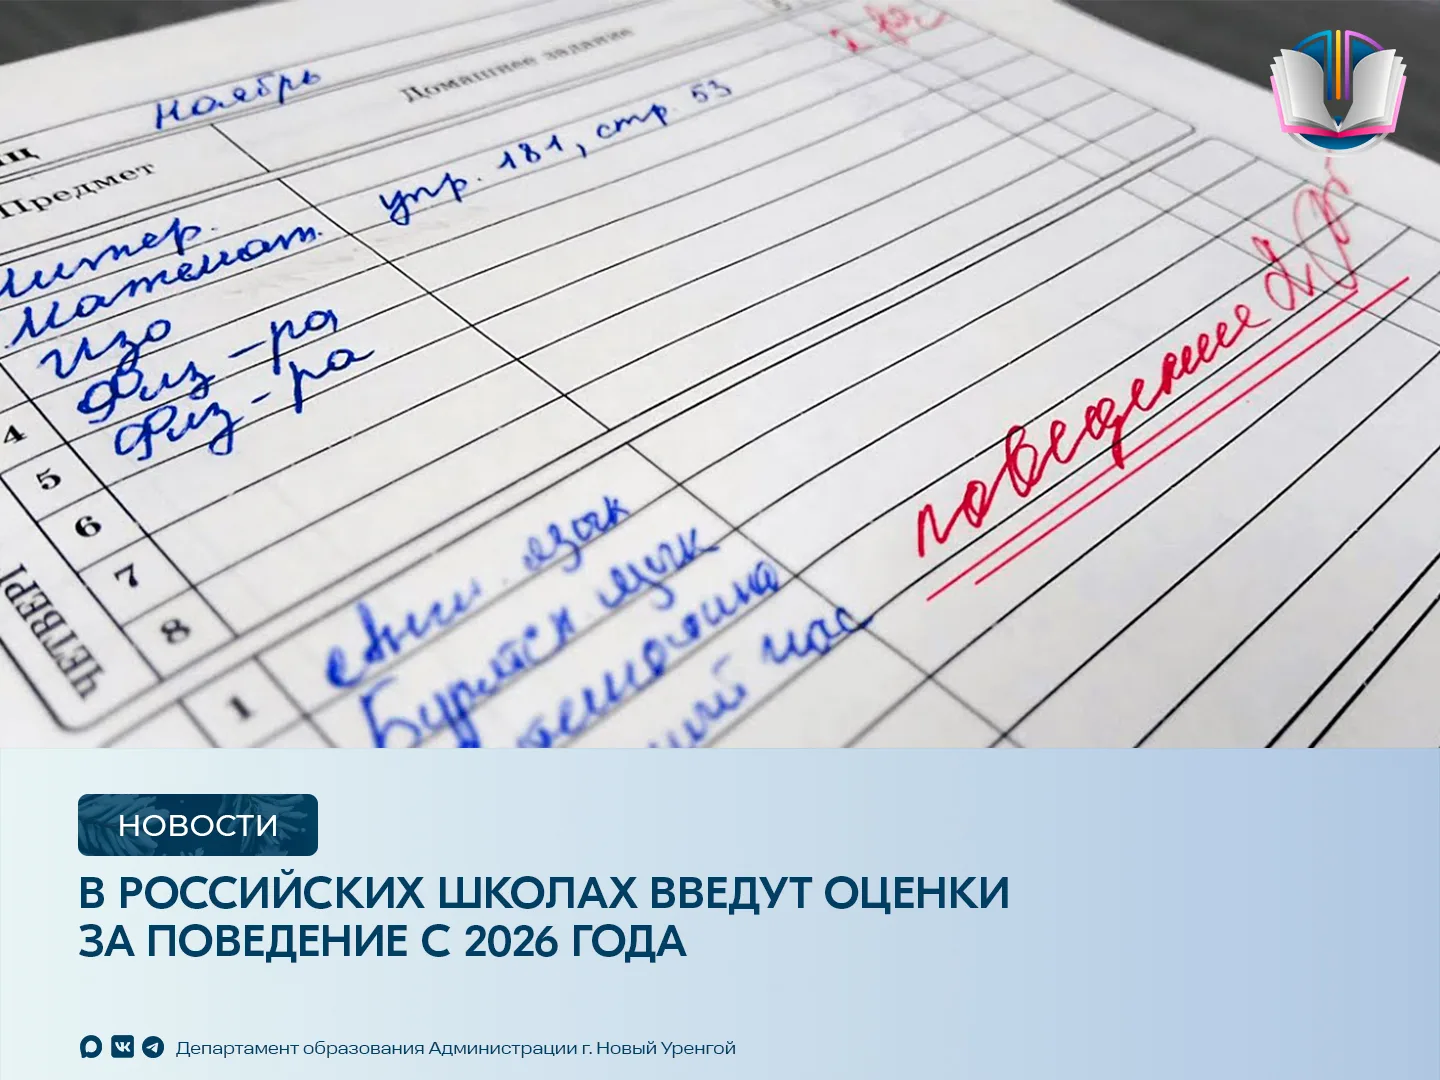 ноябрь
Предмет
Домашнее задание
Литер.
Математ.
упр. 181, стр. 53
Изо
Физ-ра
4
Физ-ра
5
6
7
8
ЧЕТВЕРГ
поведение
1
Англ. язык
Бурятск язык
час
НОВОСТИ
В РОССИЙСКИХ ШКОЛАХ ВВЕДУТ ОЦЕНКИ
ЗА ПОВЕДЕНИЕ С 2026 ГОДА
Департамент образования Администрации г. Новый Уренгой